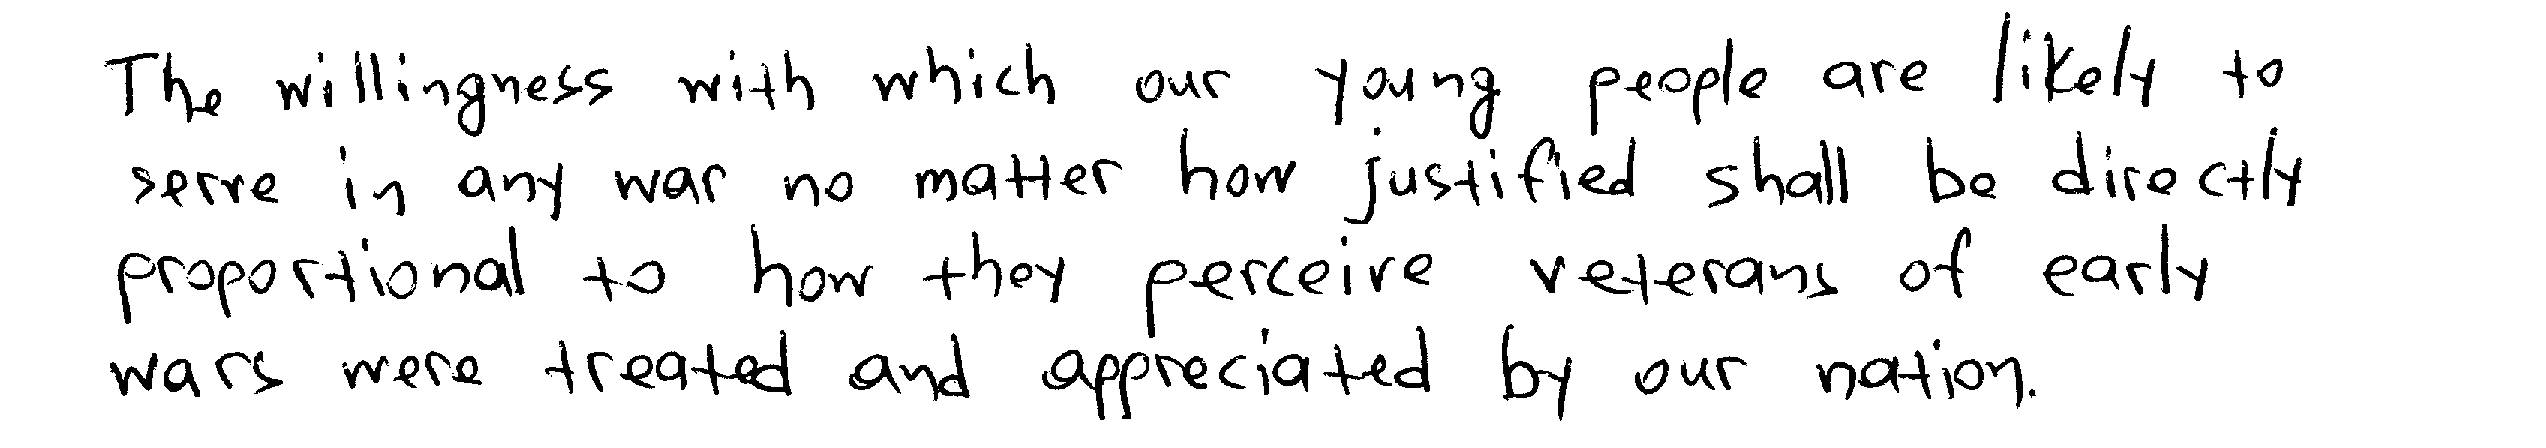 The willingness with which our young people are likely to
serve in any war no matter how justified shall be directly
proportional to how they perceive veterans of early
wars were treated and appreciated by our nation.